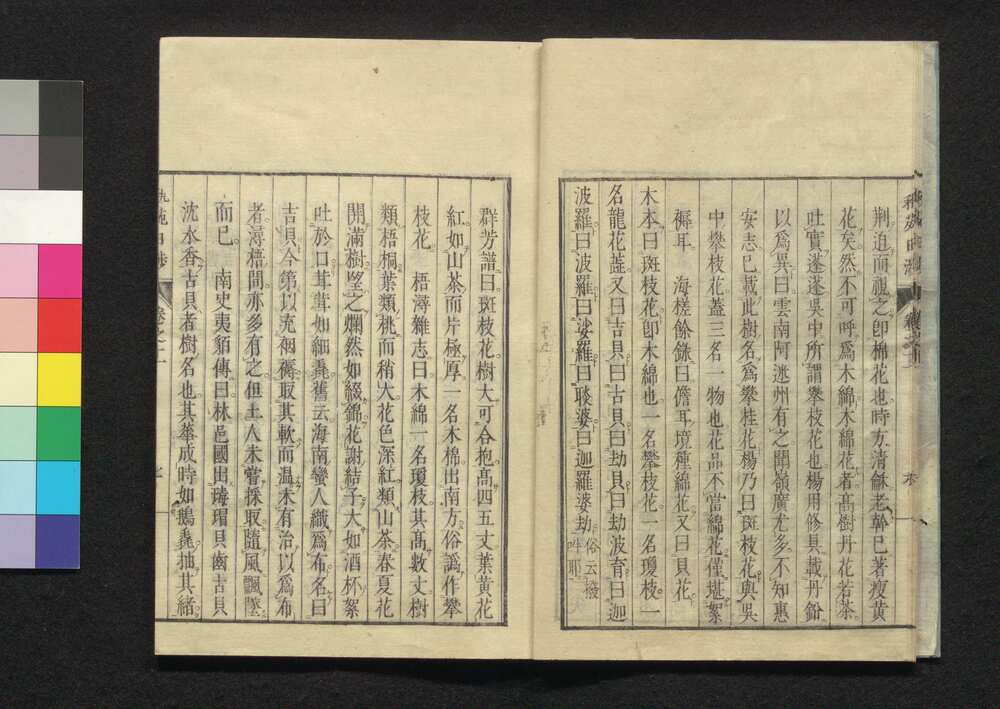 荆逈而視之卽棉花也時方清龢老幹已著瘦黄
花矣然不可呼爲木綿木綿花者髙樹丹花若茶
吐實蓬蓬吳中所謂攀枝花也楊用修具載丹鉛
以爲異曰雲南阿迷州有之聞嶺廣尤多不知惠
安志已載此樹名爲攀桂花楊乃曰斑枝花與吳
中攀枝花蓋三名一物也花品不當綿花僅堪絮
褥耳　海槎餘錄曰儋耳境種綿花又曰貝花
木本曰斑枝花卽木綿也一名攀枝花一名瓊枝一
名龍花葢又曰吉貝曰古貝曰劫貝曰劫波育曰迦
波羅曰波羅曰娑羅曰睒婆曰迦羅婆劫俗云
群芳譜曰斑枝花樹大可合抱髙四五丈葉黄花
紅如山茶而片極厚一名木棉出南方俗譌作攀
枝花　梧潯雜志曰木綿一名瓊枝其髙數丈樹
類梧桐葉類桃而稍大花色深紅類山茶春夏花
開滿樹望之爛然如綴錦花謝結子大如酒杯絮
吐於口茸茸如細毳舊云海南蠻人織爲布名曰
吉貝今第以充裀褥取其軟而温未有治以爲布
者潯梧間亦多有之但土人未嘗採取隨風飄墜
而已　南史夷貊傳曰林邑國出瑇瑁貝齒古貝
沈水香古貝者樹名也其華成時如鵝毳抽其緒
卷之二